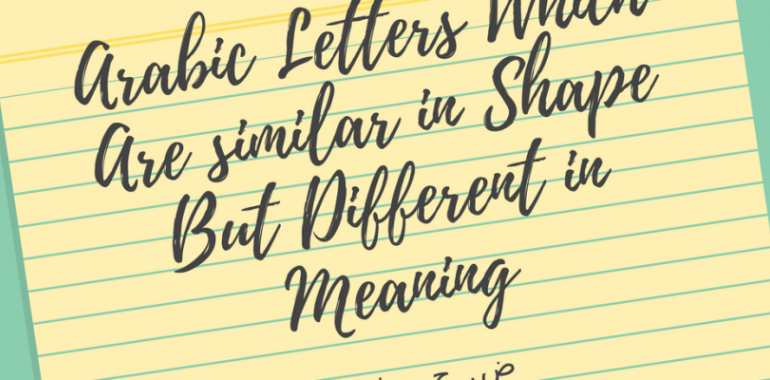 Arabic Letters Which
Are similar in Shape
But Different in
Meaning